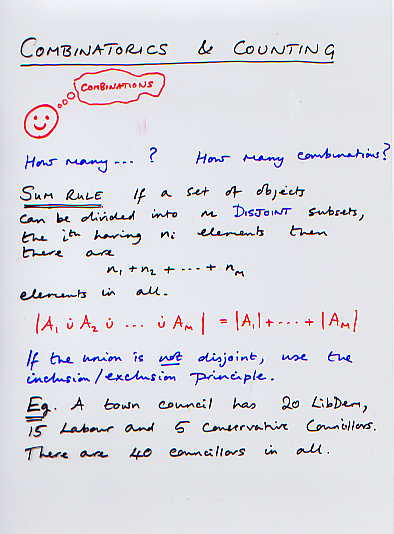 COMBINATORICS & COUNTING
COMBINATIONS
How many... ? How many combinations?
SUM RULE If a set of objects
can be divided into m DISJOINT subsets,
the iᵗʰ having nᵢ elements then
there are
n₁ + n₂ + ··· + nₘ
elements in all.
|A₁ ∪̇ A₂ ∪̇ ... ∪̇ Aₘ| = |A₁| + ··· + |Aₘ|
If the union is not disjoint, use the
inclusion/exclusion principle.
Eg. A town council has 20 LibDem,
15 Labour and 5 Conservative Councillors.
There are 40 councillors in all.